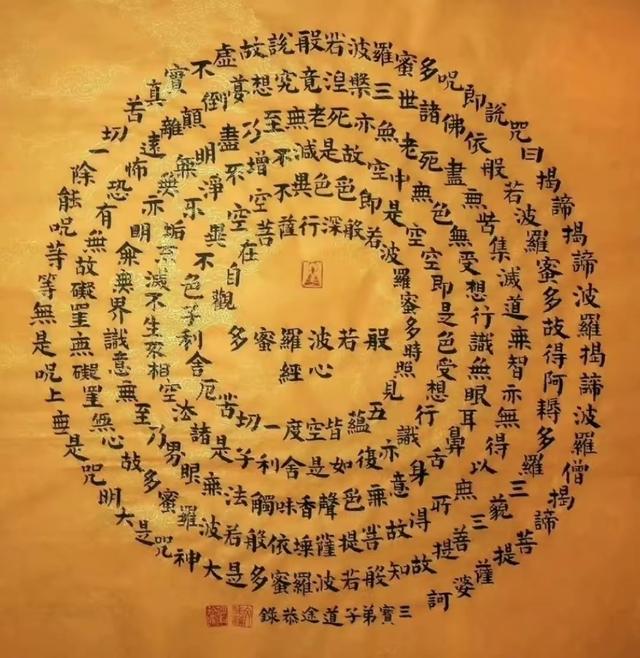 般若波羅蜜多
心經
觀自在菩薩行深般若波羅蜜多時照見五蘊皆空度一切苦厄舍利子色不異空空不異色色即是空空即是色受想行識亦復如是舍利子是諸法空相不生不滅不垢不淨不增不減是故空中無色無受想行識無眼耳鼻舌身意無色聲香味觸法無眼界乃至無意識界無無明亦無無明盡乃至無老死亦無老死盡無苦集滅道無智亦無得以無所得故菩提薩埵依般若波羅蜜多故心無罣礙無罣礙故無有恐怖遠離顛倒夢想究竟涅槃三世諸佛依般若波羅蜜多故得阿耨多羅三藐三菩提故知般若波羅蜜多是大神咒是大明咒是無上咒是無等等咒能除一切苦真實不虛故說般若波羅蜜多咒即說咒曰揭諦揭諦波羅揭諦波羅僧揭諦菩提薩婆訶
三寶弟子道途恭錄